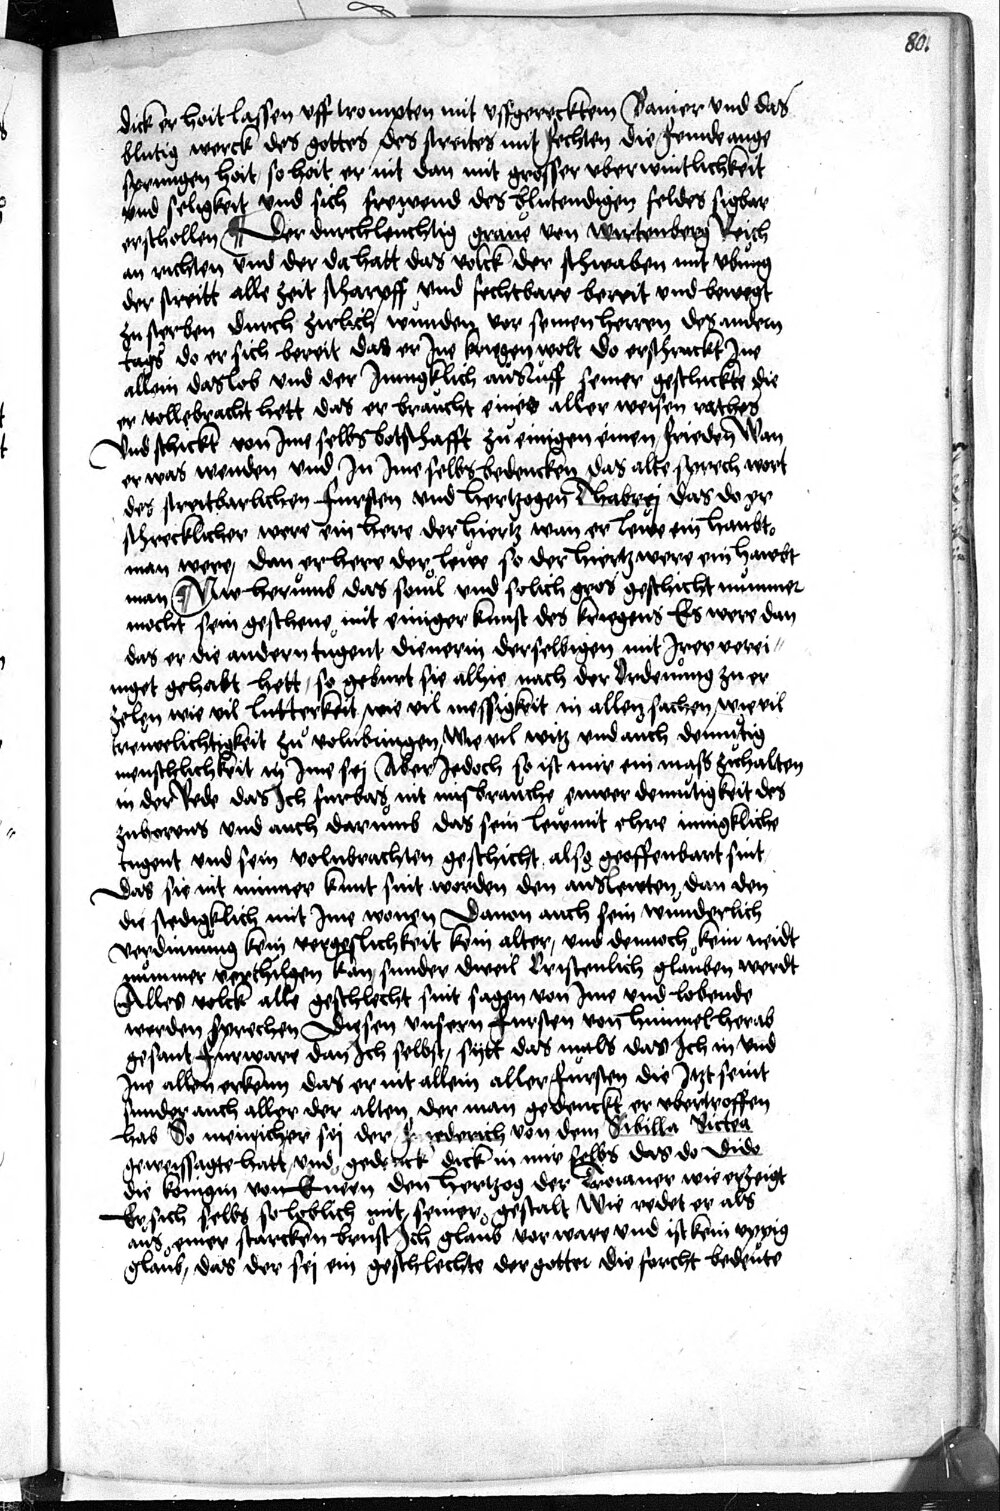 80.
dick er hoit lassen vff trompten mit vffgerecktem Banier vnd das
blutig werck des gottes des streites mit fechten die feinde ange
sprungen hoit so hoit er nit dan mit grosser vberwintlichkeit
vnd seligkeit vnd sich frewend des blutendigen feldes sigbar
erschollen Der durchleuchtig graue von wirtenberg Reich
an richten vnd der da hatt das volck der schwaben mit vbung
der streitt alle zeit scharpff vnd fechtbare bereit vnd bewegt
zu sterben durch zirlich wunden vor seinen herren des andern
tags do er sich bereit das er Ine kriegen wolt do erschrackt Ine
allein das lob vnd der Inniglich ausruff seiner geschickte die
er vollebracht hett das er braucht eines aller weisen rathes
Vnd schickt von Ime selbs botschafft zu einigen einen frieden Wan
er was wenden vnd In Ime selbs bedencken das alte sprech wort
des streitbarlichen fursten vnd hertzogen Chabrej das do er
schrecklicher were ein here der hiertz wan er lewe ein haubt
man were, dan er here der lewe so der hiertz were ein hawbt
man Nie herumb das souil vnd solich gros geschicht nummer
mocht sein geschene mit einiger kunst des kriegens Es were dan
das er die andern tugent dienerin derselbigen mit Irer verei"
niget gehabt hett, so geburt sie alhie nach der Ordenung zu er
zelen wie vil lutterkeit, wie vil messigkeit in allen sachen, wie vil
trewelichtigkeit zu volnbringen, Wie vil witz vnd auch demutig
menschlichkeit in Ime sej Aber Jedoch so ist mir ein mass zuhalten
in der Rede das Ich furbas nit misbrauche ewer demutigkeit des
zuhorens vnd auch darumb das sein lewmit ehre innigkliche
tugent vnd sein volnbrachten geschicht also geoffenbart sint
Das sie nit minner kunt sint worden den auslewten, dan den
die stedigklich mit Ime wonen Dauon auch sein wunderlich
verdinnung kein vergeslichkeit kein alter, vnd dennoch kein neidt
nummer verthilgen kan, sunder dweil Cristenlich glauben werdt
Alles volck alle geschlecht sint sagen von Ime vnd lobende
werden sprechen Diesen vnsern fursten von himmel herab
gesant furware dan Ich selbst, sijtt das mals das Ich in vnd
Ine allen erkenn das er nit allein aller fursten die Itzt seint
sunder auch aller der alten, der man gedenckt er vbertroffen
hab So mein ich er sej der friederich von dem Sibilla Rictea
geweissagt hatt, vnd gedenck dick in mir selbs das do Dido
die konigin von Eneen den hertzog der Troianer wie erzeigt
Er sich selbs so loblich mit seiner gestalt Wie redet er als
aus einer starcken brust Ich glaub vorware vnd ist kein vppig
glaub, das der sej ein geschlechte der gotter die forcht bedeute